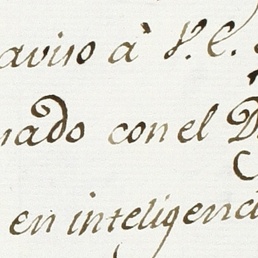 aviso à V. E.
nado con el D
en inteligenci